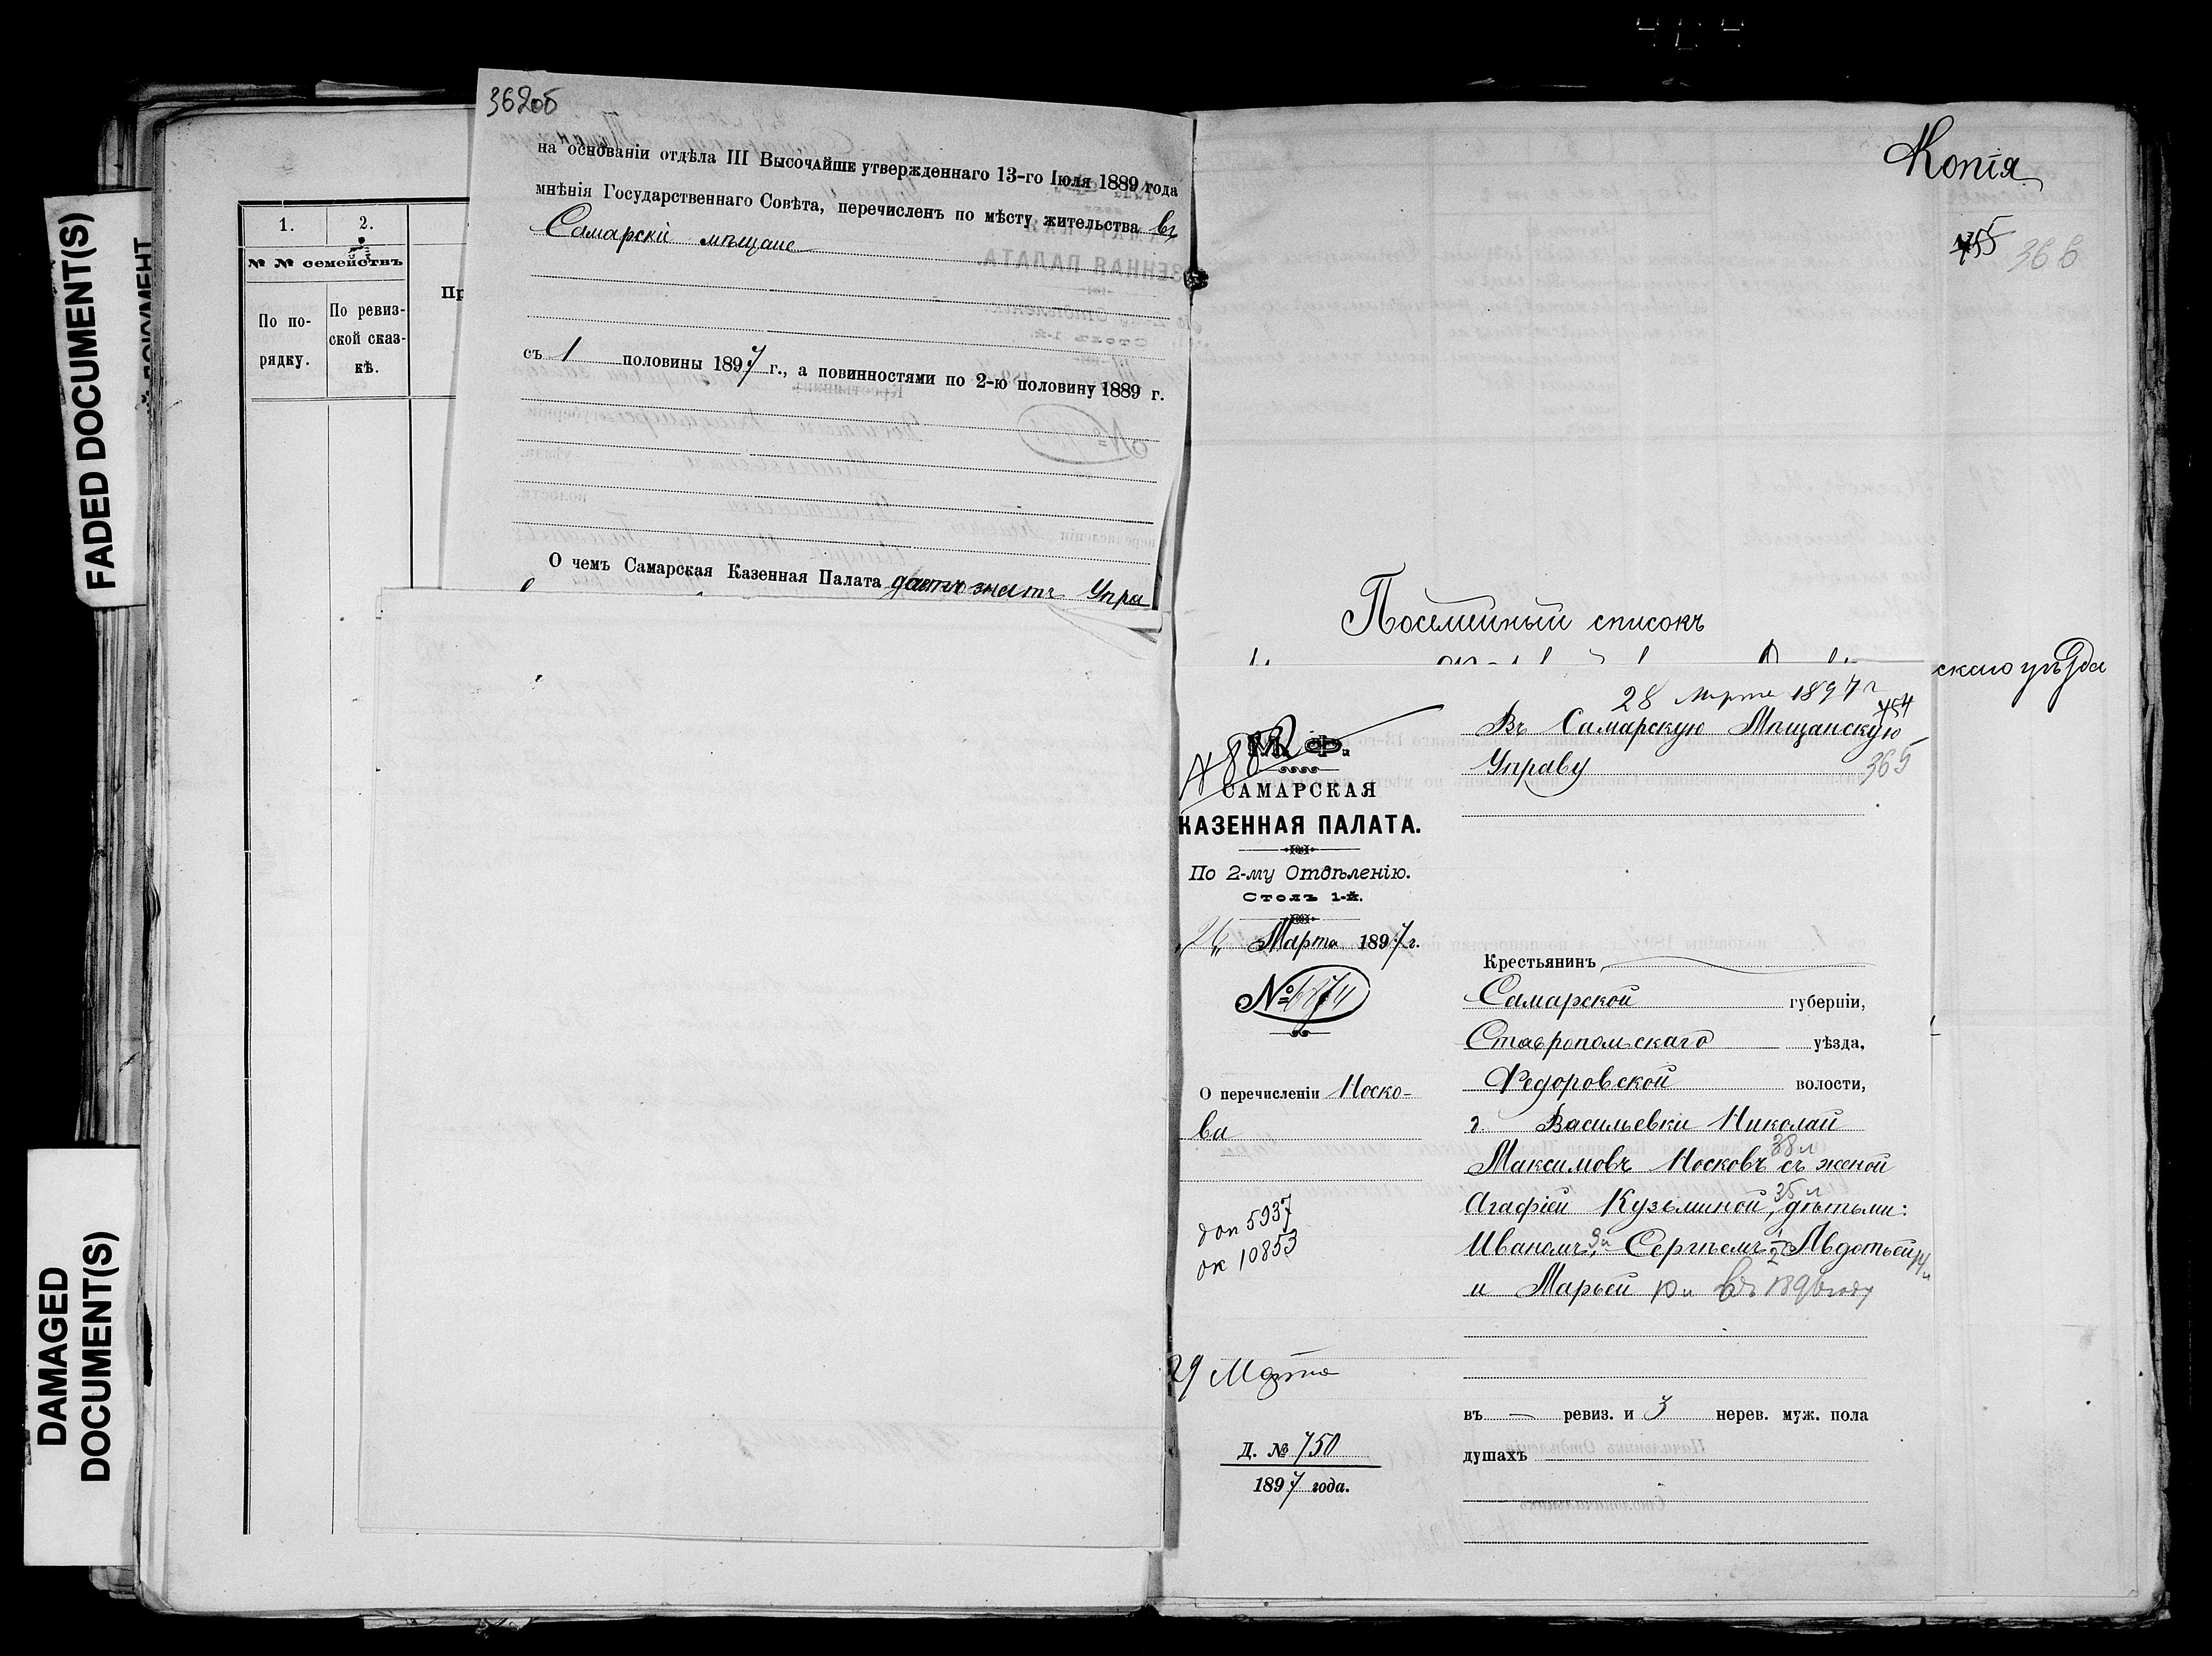 FADED DOCUMENT(S)
DAMAGED
DOCUMENT(S)
1.
2.
№ № семействъ
По по-
рядку.
По ревиз-
ской сказ-
кѣ.
Пр
362об
на основаніи отдѣла III Высочайше утвержденнаго 13-го Іюля 1889 года
мнѣнія Государственнаго Совѣта, перечисленъ по мѣсту жительства въ
Самарскіе мѣщане
съ 1 половины 1897 г., а повинностями по 2-ю половину 1889 г.
О чемъ Самарская Казенная Палата даетъ знать Упра
Копія
455
366
Посемейный списокъ
скаго уѣзда
28 марта 1897 г
454
Въ Самарскую Мѣщанскую
Управу
365
М. Ф.
САМАРСКАЯ
КАЗЕННАЯ ПАЛАТА.
По 2-му Отдѣленію.
Столъ 1-й.
26 Марта 1897 г.
№
О перечисленіи Носко-
ва
доп 5937
ок 10853
29 Марта
Д. № 750
1897 года.
Крестьянинъ
Самарской губерніи,
Ставропольскаго уѣзда,
Федоровской волости,
Васильевки Николай
Максимовъ Носковъ 38 л съ женой
Агафіей Кузьминой, 35 л дѣтьми:
Иваномъ, 9 л Сергѣемъ 1/2 Авдотьей 14 л
и Марьей 10 л въ 1896 году
въ — ревиз. и 3 нерев. муж. пола
душахъ